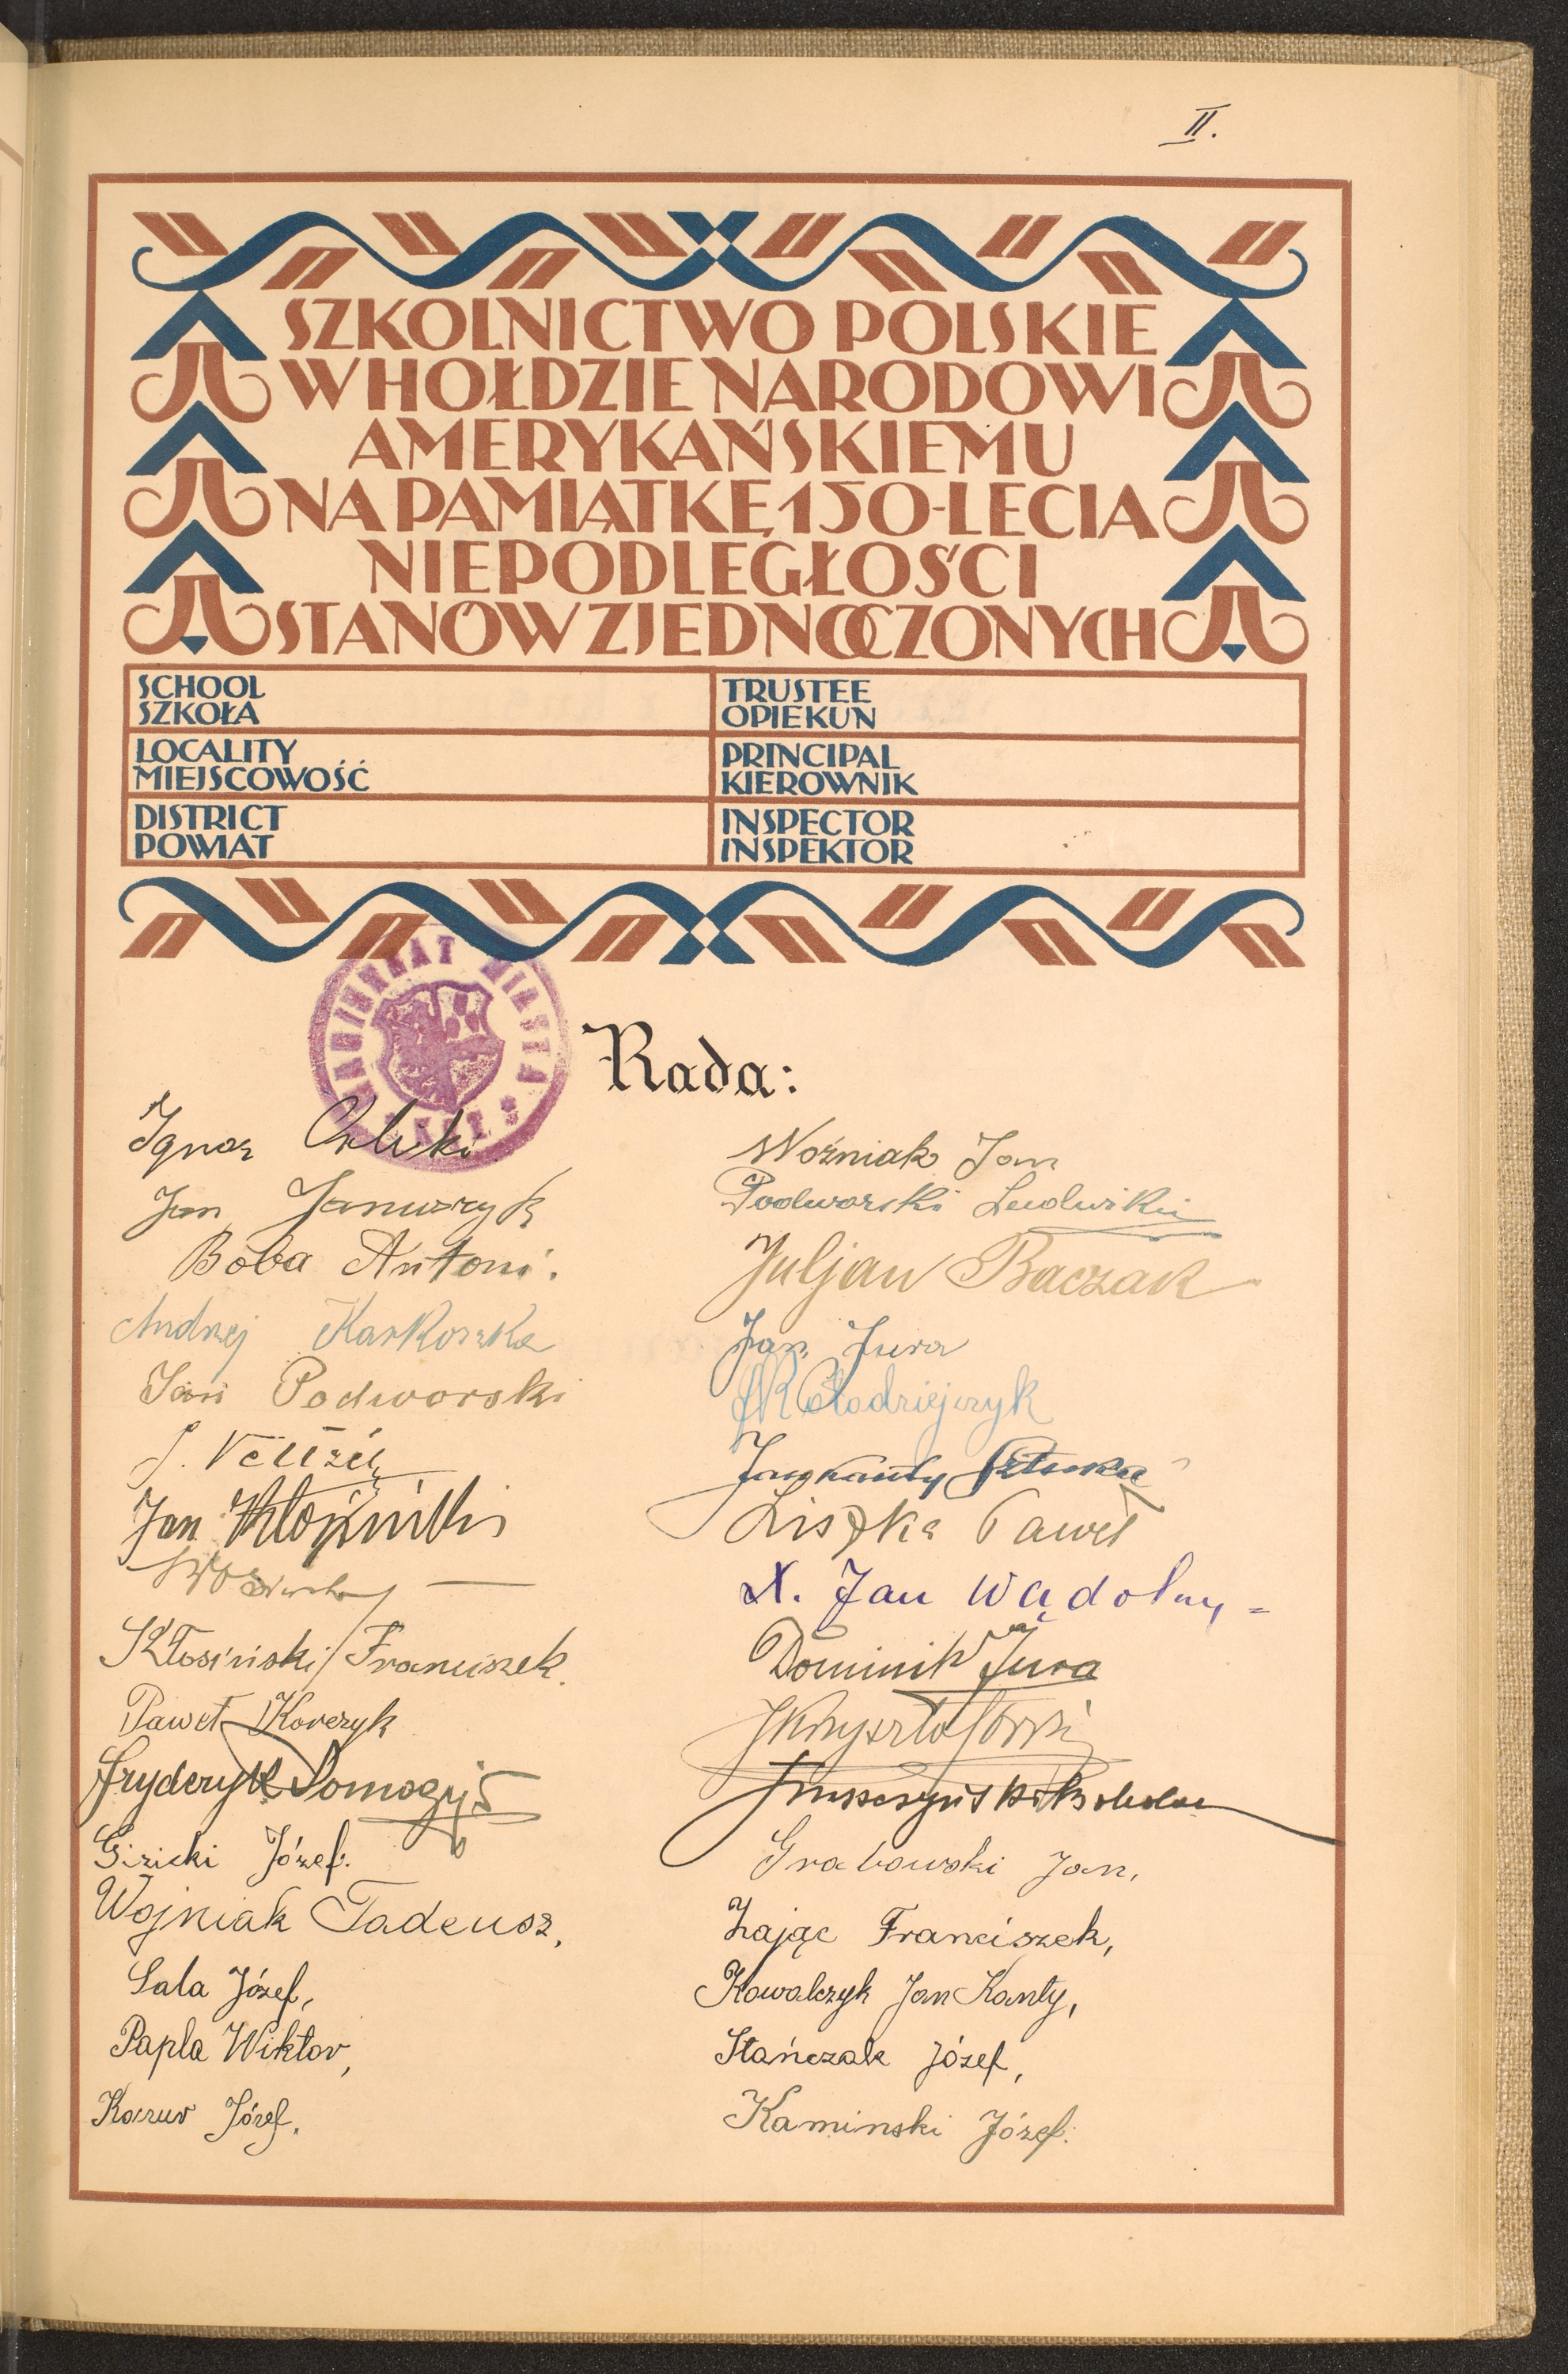 II.
SZKOLNICTWO POLSKIE
W HOŁDZIE NARODOWI
AMERYKAŃSKIEMU
NA PAMIĄTKĘ 150-LECIA
NIEPODLEGŁOŚCI
STANÓW ZJEDNOCZONYCH
SCHOOL
SZKOŁA
TRUSTEE
OPIEKUN
LOCALITY
MIEJSCOWOŚĆ
PRINCIPAL
KIEROWNIK
DISTRICT
POWIAT
INSPECTOR
INSPEKTOR
MAGISTRAT MIASTA
Rada:
Ignac
Jan Januszyk
Boba Antoni.
Andrzej Karkoszka
Jan Podworski
Jan
Kłosiński Franciszek.
Paweł Korczyk
Fryderyk
Gizicki Józef.
Wojniak Tadeusz,
Sala Józef,
Papla Wiktor,
Józef.
Woźniak Jan
Podworski Ludwik
Juljan Baczak
Jan Jura
Kołodziejczyk
Jan Kanty
Liszka Paweł
X. Jan Wądolny
Dominik Jura
Grabowski Jan,
Zając Franciszek,
Kowalczyk Jan Kanty,
Stańczak Józef,
Kaminski Józef.